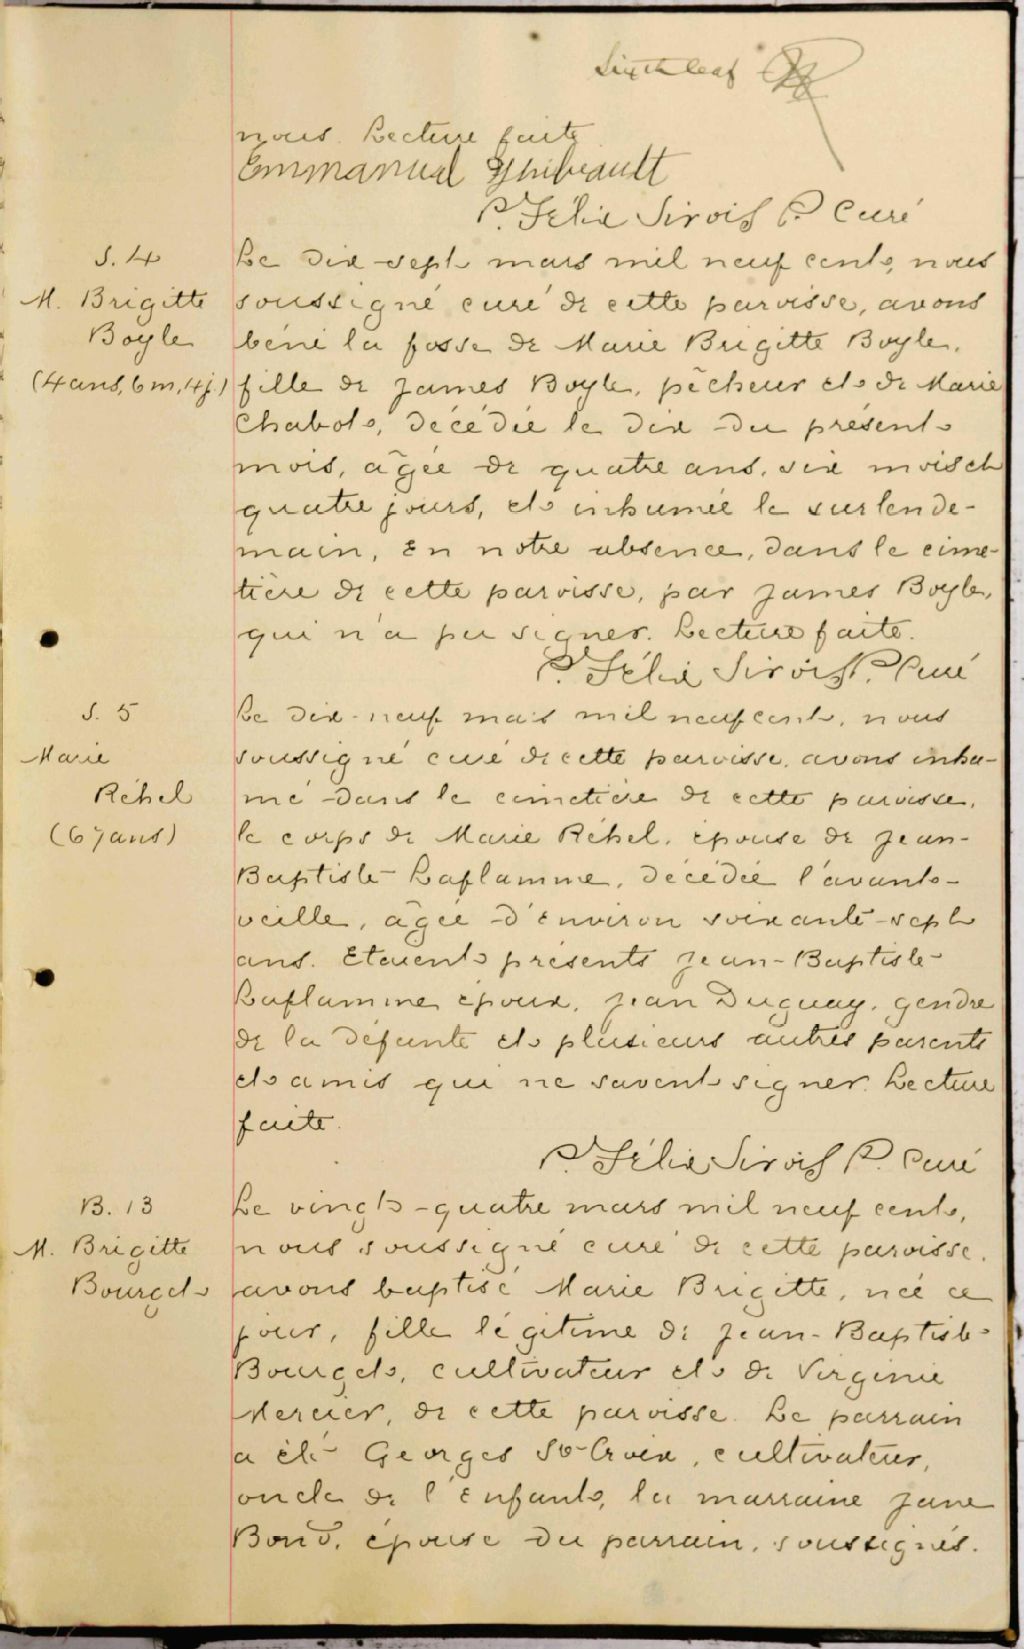 Sixth leaf
nous. Lecture faite
Emmanuel Thibeault
P. Félix Sirois P. Curé
S. 4
M. Brigitte
Boyle
(4 ans, 6 m, 4 j.)
Le dix-sept mars mil neuf cent, nous
soussigné curé de cette paroisse, avons
béni la fosse de Marie Brigitte Boyle,
fille de James Boyle, pêcheur et de Marie
Chabot, décédée le dix du présent
mois, âgée de quatre ans, six mois et
quatre jours, et inhumée le surlende-
main, en notre absence, dans le cime-
tière de cette paroisse, par James Boyle,
qui n'a pu signer. Lecture faite.
P. Félix Sirois P. Curé
S. 5
Marie
Réhel
(67 ans)
Le dix-neuf mars mil neuf cent, nous
soussigné curé de cette paroisse, avons inhu-
mé dans le cimetière de cette paroisse,
le corps de Marie Réhel, épouse de Jean-
Baptiste Laflamme, décédée l'avant-
veille, âgée d'environ soixante-sept
ans. Etaient présents Jean-Baptiste
Laflamme époux, Jean Duguay, gendre
de la défunte et plusieurs autres parents
et amis qui ne savent signer. Lecture
faite.
P. Félix Sirois P. Curé
B. 13
M. Brigitte
Bourget
Le vingt-quatre mars mil neuf cent,
nous soussigné curé de cette paroisse,
avons baptisé Marie Brigitte, née ce
jour, fille légitime de Jean-Baptiste
Bourget, cultivateur et de Virginie
Mercier, de cette paroisse. Le parrain
a été Georges Ste Croix, cultivateur,
oncle de l'enfant, la marraine Jane
Bond, épouse du parrain, soussignés.